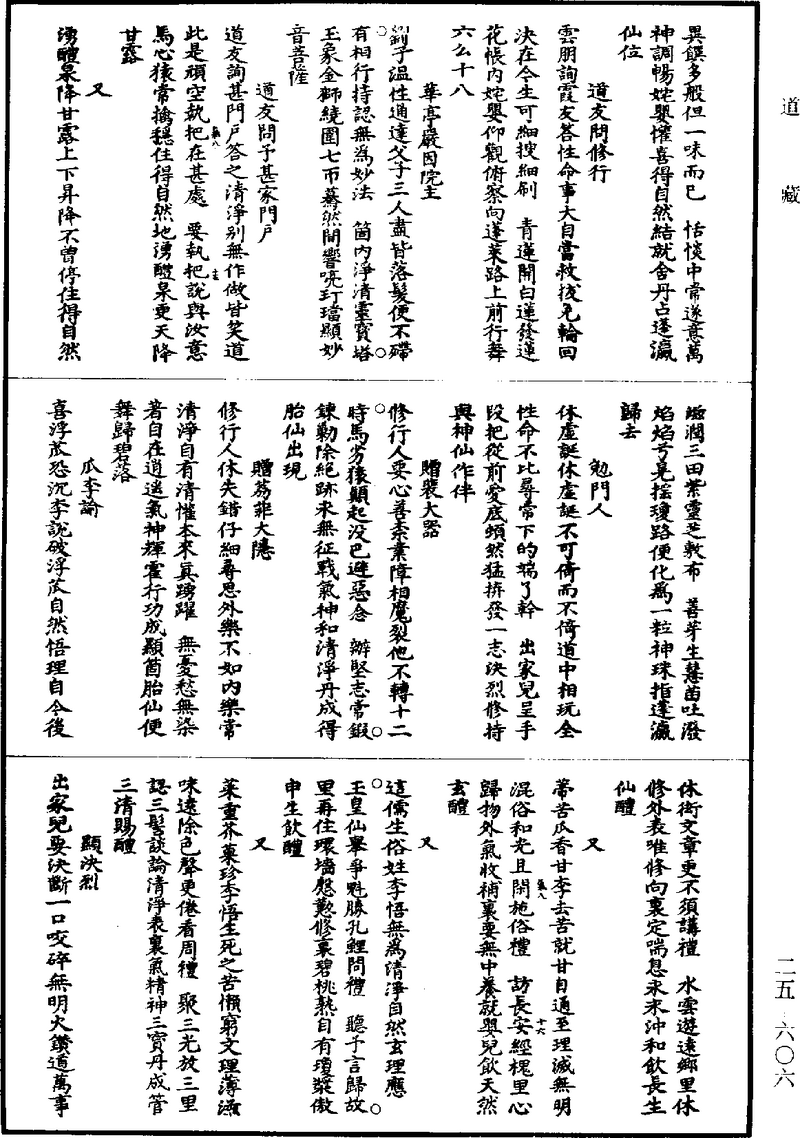 道藏
異饌多般但一味而已　恬惔中常遂意萬
神調暢姹嬰懽喜得自然結就舍丹占蓬瀛
仙位
道友問修行
雲朋詢霞友荅性命事大自當救拔免輪回
決在今生可細搜細刷　青蓮開白蓮發蓮
花帳內姹嬰仰觀俯察向蓬萊路上前行舞
六么十八
華亭嚴因院主
劉子溫性通達父子三人盡皆落髮便不𦡶
有相行持認無為妙法　箇內淨清靈寶塔
玉象金獅繞圍七帀驀然間響喨玎璫顯妙
音菩薩
道友問予甚家門戶
道友詢甚門戶荅之清淨別無作做皆笑道
此是頑空執把在甚處　要執把說與汝意
馬心猿常擒穩住得自然地湧醴泉更天降
甘露
又
湧醴泉降甘露上下昇降不曾停住得自然
滋潤三田紫靈芝敷布　善芽生慧苗吐潑
焰焰兮晃搖瓊路便化為一粒神珠指蓬瀛
歸去
勉門人
休虛誕休虛誕不可倚而不倚道中相玩全
性命不比尋常下的端了幹　出家兒呈手
段把從前愛底頓然猛拚發一志決烈修持
與神仙作伴
贈裴大器
修行人要心善柰業障相魔裂他不轉十二
時馬劣猿顛起沒巴避惡念　辦堅志常鍛
鍊勦除絕跡永無征戰氣神和清淨丹成得
胎仙出現
贈蒭菲大隱
修行人休失錯仔細尋思外樂不如內樂常
清淨自有清懽本來真踴躍　無憂愁無染
著自在逍遙氣神輝霍行功成顯箇胎仙便
舞歸碧落
瓜李論
喜浮瓜恐沉李說破浮瓜自然悟理自今後
休衒文章更不須講禮　水雲遊遠鄉里休
修外表唯修向裏定喘息永永沖和飲長生
仙醴
又
蔕苦瓜香甘李去苦就甘自通至理滅無明
混俗和光且閑施俗禮　訪長安經槐里心
歸物外氣收補裏要無中養就嬰兒飲天然
玄醴
又
這儒生俗姓李悟無為清淨自然玄理應
玉皇仙舉爭魁勝孔鯉問禮　聽予言歸故
里再住環墻慇懃修裏碧桃熟自有瓊漿傲
申生飲醴
又
菜重芥菓珍李悟生死之苦懶窮文理薄滋
味遠除色聲更倦看周禮　聚三光放三里
認三髻談論清淨表裏氣精神三寶丹成管
三清賜醴
顯決烈
出家兒要決斷一口咬碎無明火鑽道萬事
二五　六〇六